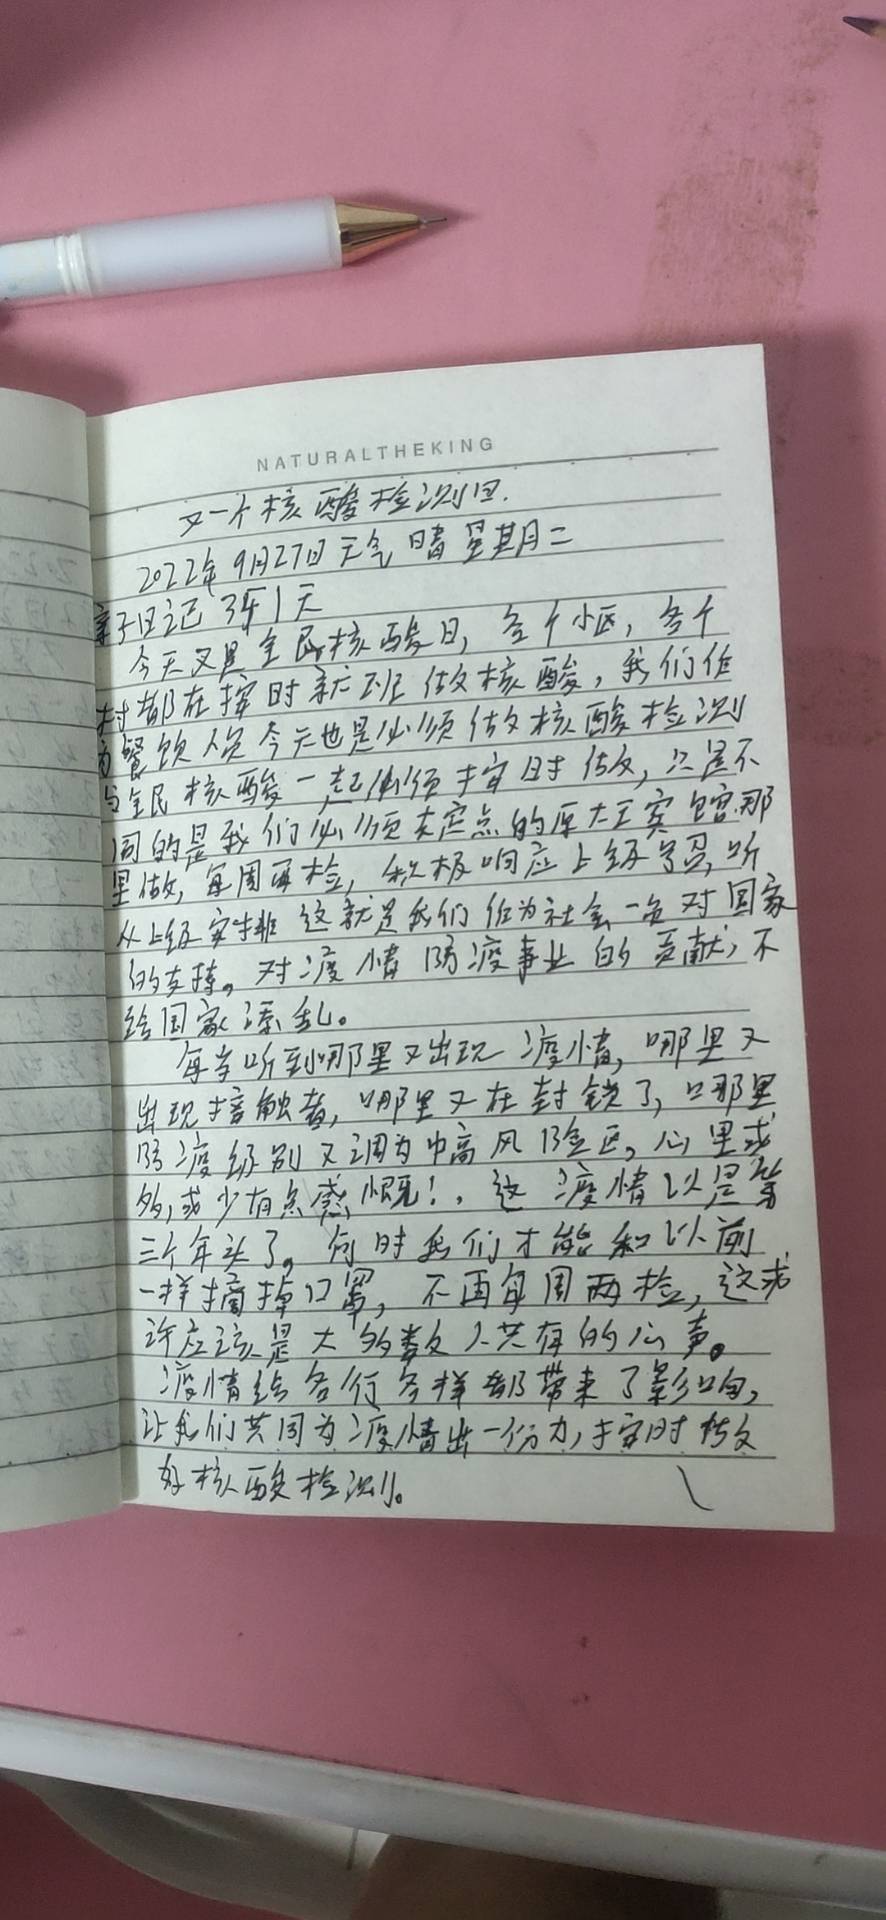 NATURALTHEKING
又一个核酸检测日.
2022年9月27日天气晴星期二
亲子日记 天
今天又是全民核酸日，各个小区，各个
村都在按时就班做核酸，我们作
为餐饮人员今天也是必须做核酸检测
与全民核酸一起必须按时做，只是不
同的是我们必须去定点的原大王宾馆那
里做，每周两检，积极响应上级号召，听
从上级安排这就是我们作为社会一员对国家
的支持。对疫情防疫事业的贡献，不
给国家添乱。
每当听到哪里又出现疫情，哪里又
出现接触者，哪里又在封锁了，哪里
防疫级别又调为中高风险区。心里或
多，或少有点感慨！，这疫情以是第
三个年头了。何时我们才能和以前
一样摘掉口罩，不再每周两检，这或
许应该是大多数人共有的心声。
疫情给各行各样都带来了影响，
让我们共同为疫情出一份力，按时做
好核酸检测。